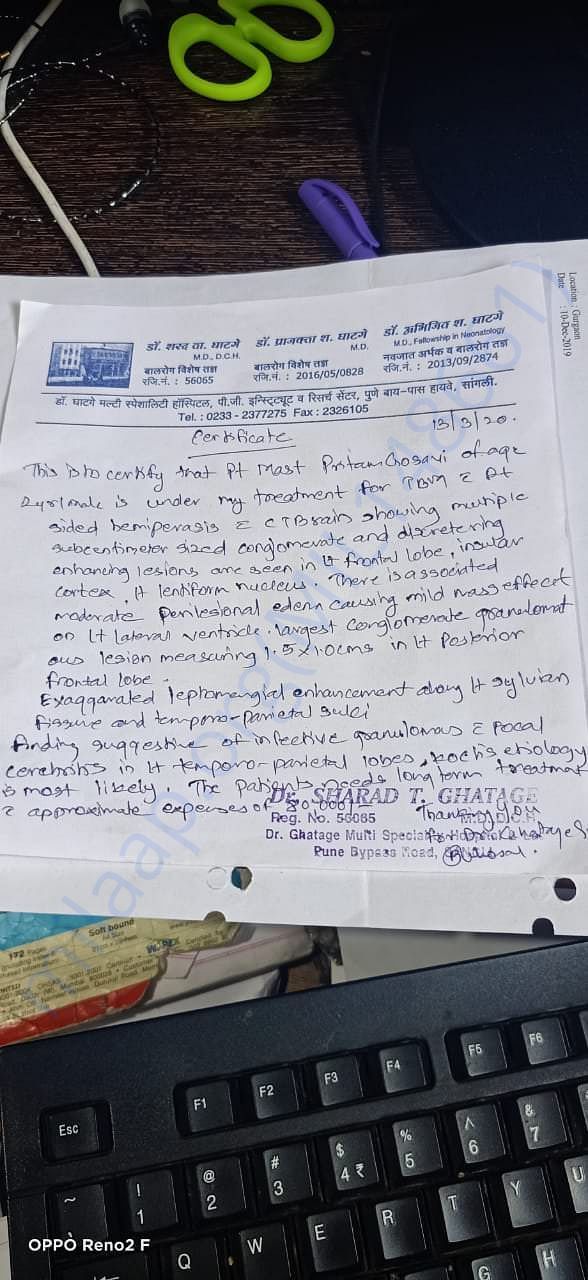 Location : Gurgaon
Date : 10-Dec-2019
डॉ. शरद वा. घाटगे
M.D., D.C.H.
बालरोग विशेष तज्ञ
रजि.नं. : 56065
डॉ. प्राजक्ता श. घाटगे
M.D.
बालरोग विशेष तज्ञ
रजि.नं. : 2016/05/0828
डॉ. अभिजित श. घाटगे
M.D., Fellowship in Neonatology
नवजात अर्भक व बालरोग तज्ञ
रजि.नं. : 2013/09/2874
डॉ. घाटगे मल्टी स्पेशालिटी हॉस्पिटल, पी.जी. इन्स्टिट्यूट व रिसर्च सेंटर, पुणे बाय-पास हायवे, सांगली.
Tel. : 0233 - 2377275 Fax : 2326105
13/3/20.
Certificate
This is to certify that Pt Mast Pritam Gosavi of age
2yr/male is under my treatment for TBM c Rt
sided hemiperasis c CT Brain showing multiple
subcentimeter sized conglomerate and discretering
enhancing lesions are seen in lt frontal lobe, insular
cortex, lt lentiform nucleus. There is associated
moderate perilesional edem causing mild mass effect
on lt lateral ventricle. largest conglomerate granulomat
ous lesion measuring 1.5x1.0cms in lt Posterior
frontal lobe.
Exaggarated leptomengial enhancement along lt sylvian
fissure and temporo-parietal sulci
finding suggestive of infective granulomas c focal
cerebritis in lt temporo-parietal lobes, koch's etiology
is most likely. The patients needs long term treatment
c approximate expenses of 80,000/-
Thanking you
Dr. SHARAD T. GHATAGE
M.D., D.C.H.
Reg. No. 56065
Dr. Ghatage Multi Speciality Hospital
Pune Bypass Road,
milaap.org
172 Pages
Soft bound
OPPO Reno2 F
Esc
F1
F2
F3
F4
F5
F6
~
! 1
@ 2
# 3
$ 4 ₹
% 5
^ 6
& 7
Q
W
E
R
T
Y
U
G
H